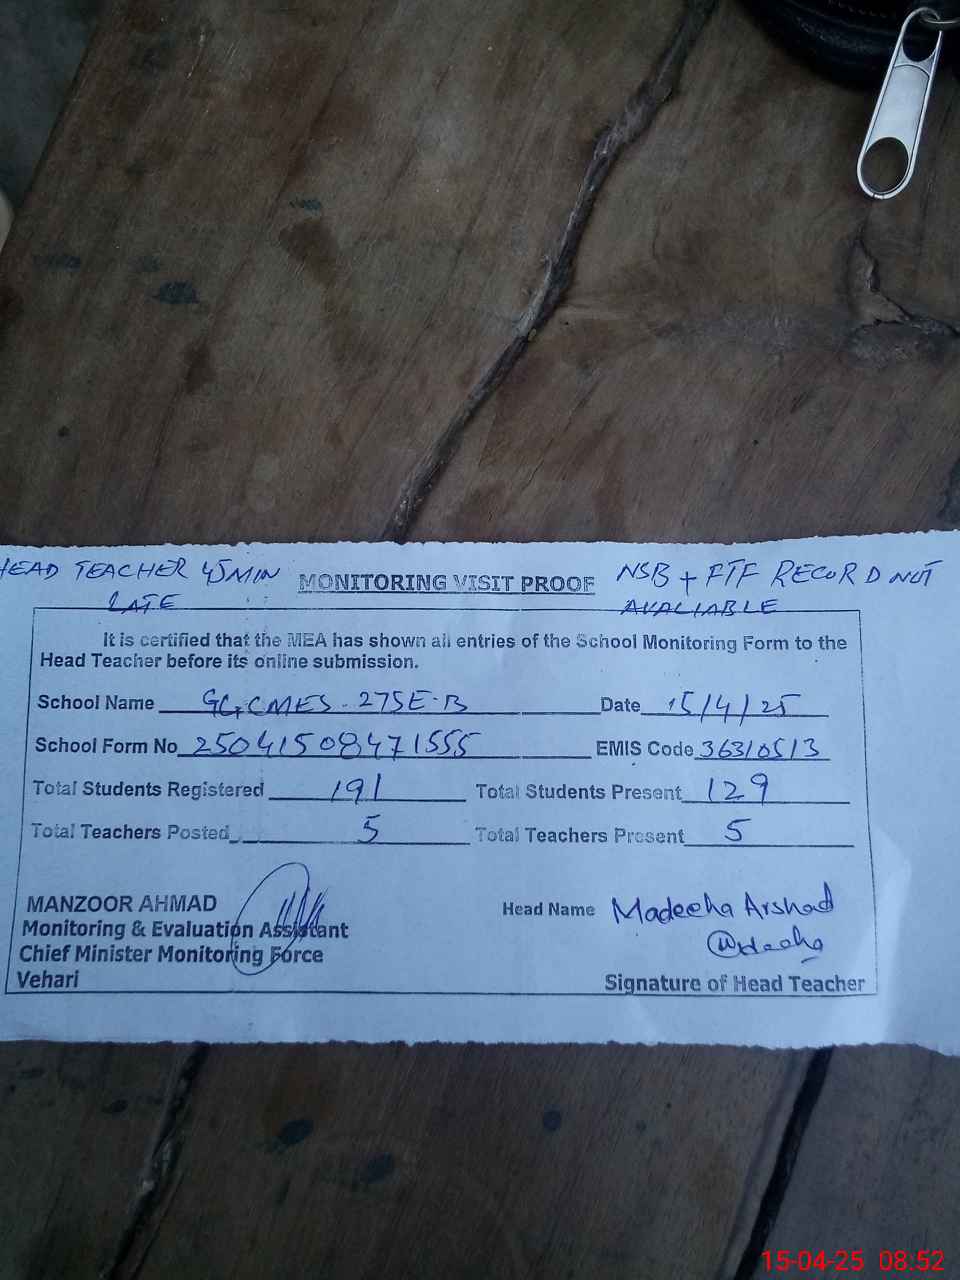 HEAD TEACHER 45 MIN LATE
MONITORING VISIT PROOF
NSB + FTF RECORD NOT AVALIABLE
It is certified that the MEA has shown all entries of the School Monitoring Form to the
Head Teacher before its online submission.
School Name GGCMES. 275E-B Date 15/4/25
School Form No 25041508471555 EMIS Code 36310513
Total Students Registered 191 Total Students Present 129
Total Teachers Posted 5 Total Teachers Present 5
MANZOOR AHMAD
Monitoring & Evaluation Assistant
Chief Minister Monitoring Force
Vehari
Head Name Madeeha Arshad
Signature of Head Teacher
15-04-25 08:52